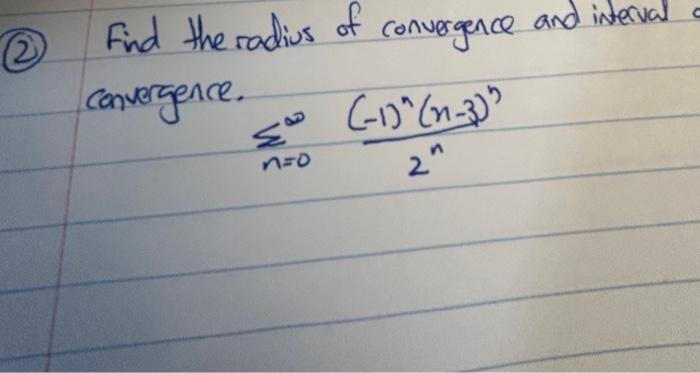 ② Find the radius of convergence and interval
convergence.
∞ (-1)ⁿ (n-3)ⁿ
Σ
n=0 2ⁿ